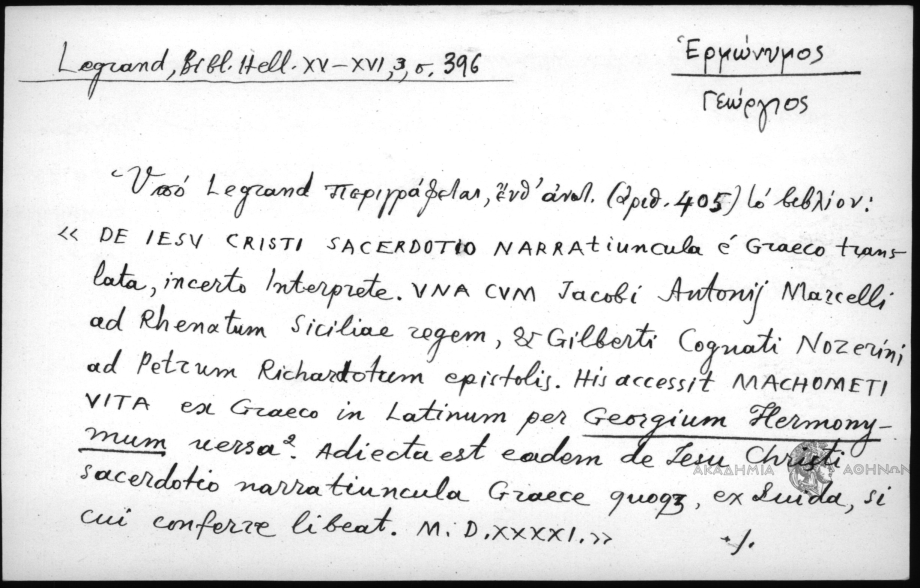 Legrand, Bibl. Hell. XV–XVI, 3, σ. 396
Ἑρμώνυμος
Γεώργιος
Ὑπό Legrand περιγράφεται, ἔνθ' ἀνωτ. (ἀριθ. 405) τό βιβλίον:
« DE IESV CRISTI SACERDOTIO NARRAtiuncula é Graeco trans-
lata, incerto Interprete. VNA CVM Jacobi Antonij Marcelli
ad Rhenatum Siciliae regem, & Gilberti Cognati Nozerini
ad Petrum Richardotum epistolis. His accessit MACHOMETI
VITA ex Graeco in Latinum per Georgium Hermony-
mum versa. Adiecta est eadem de Iesu Christi
ΑΚΑΔΗΜΙΑ ΑΘΗΝΩΝ
sacerdotio narratiuncula Graece quoqz, ex Suida, si
cui conferre libeat. M. D. XXXXI. »
./.